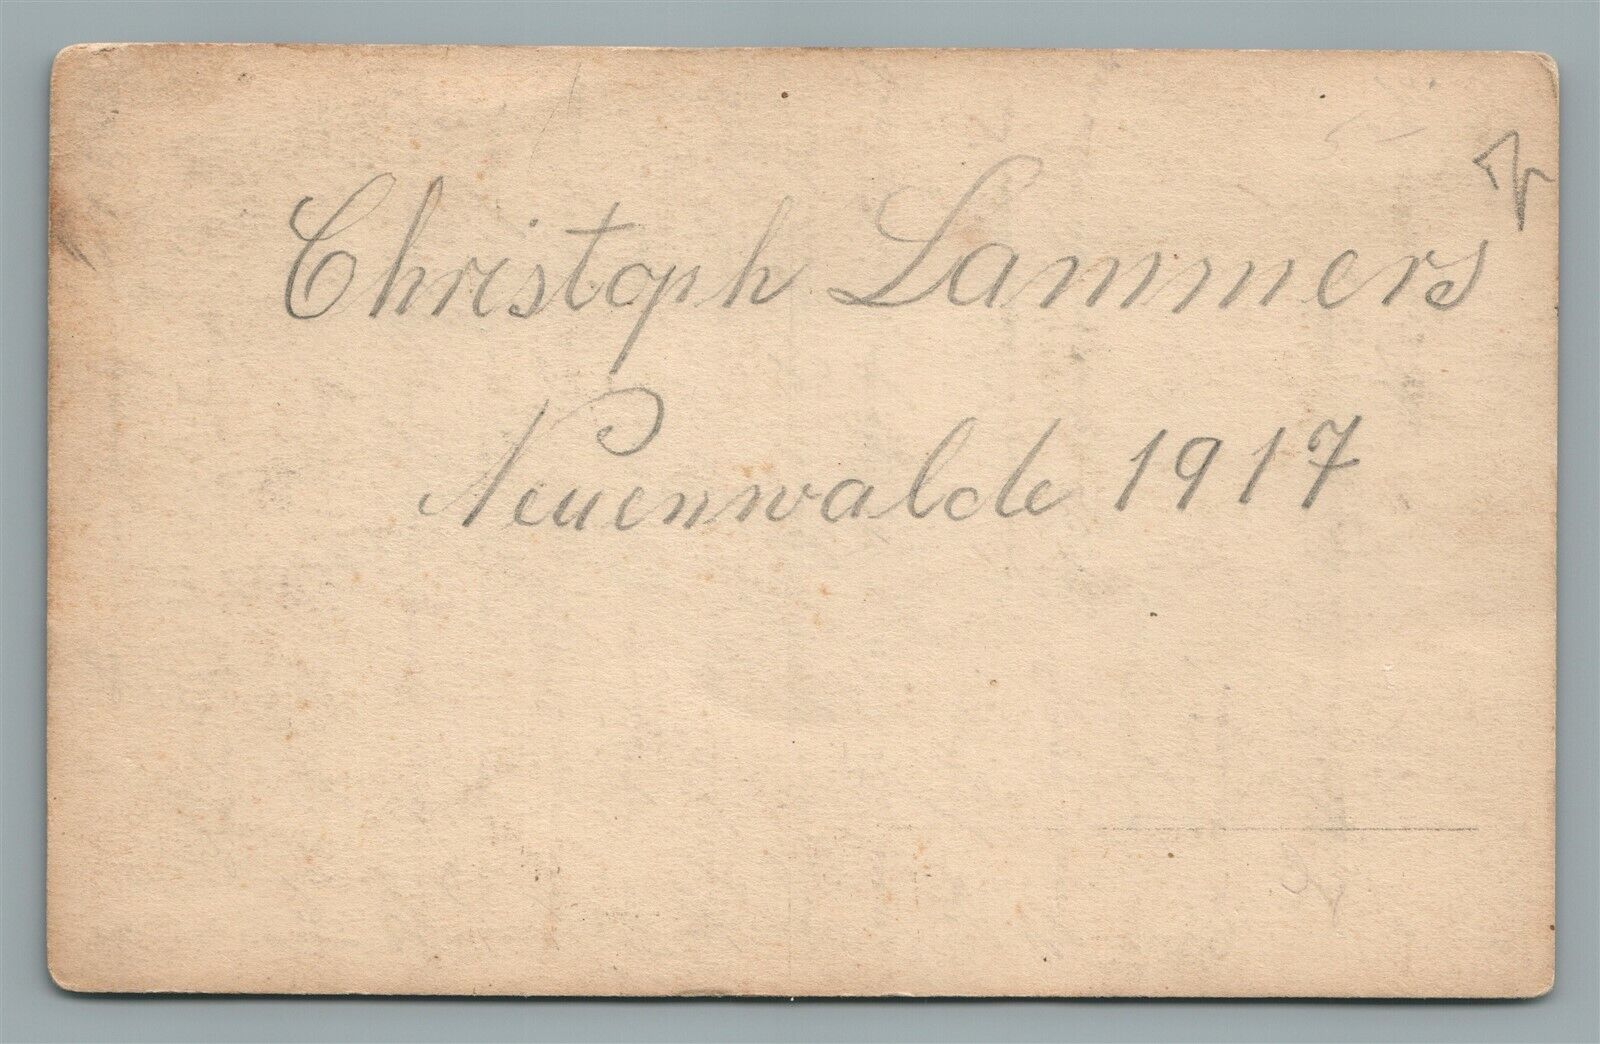 Christoph Lammers
Neuenwalde 1917